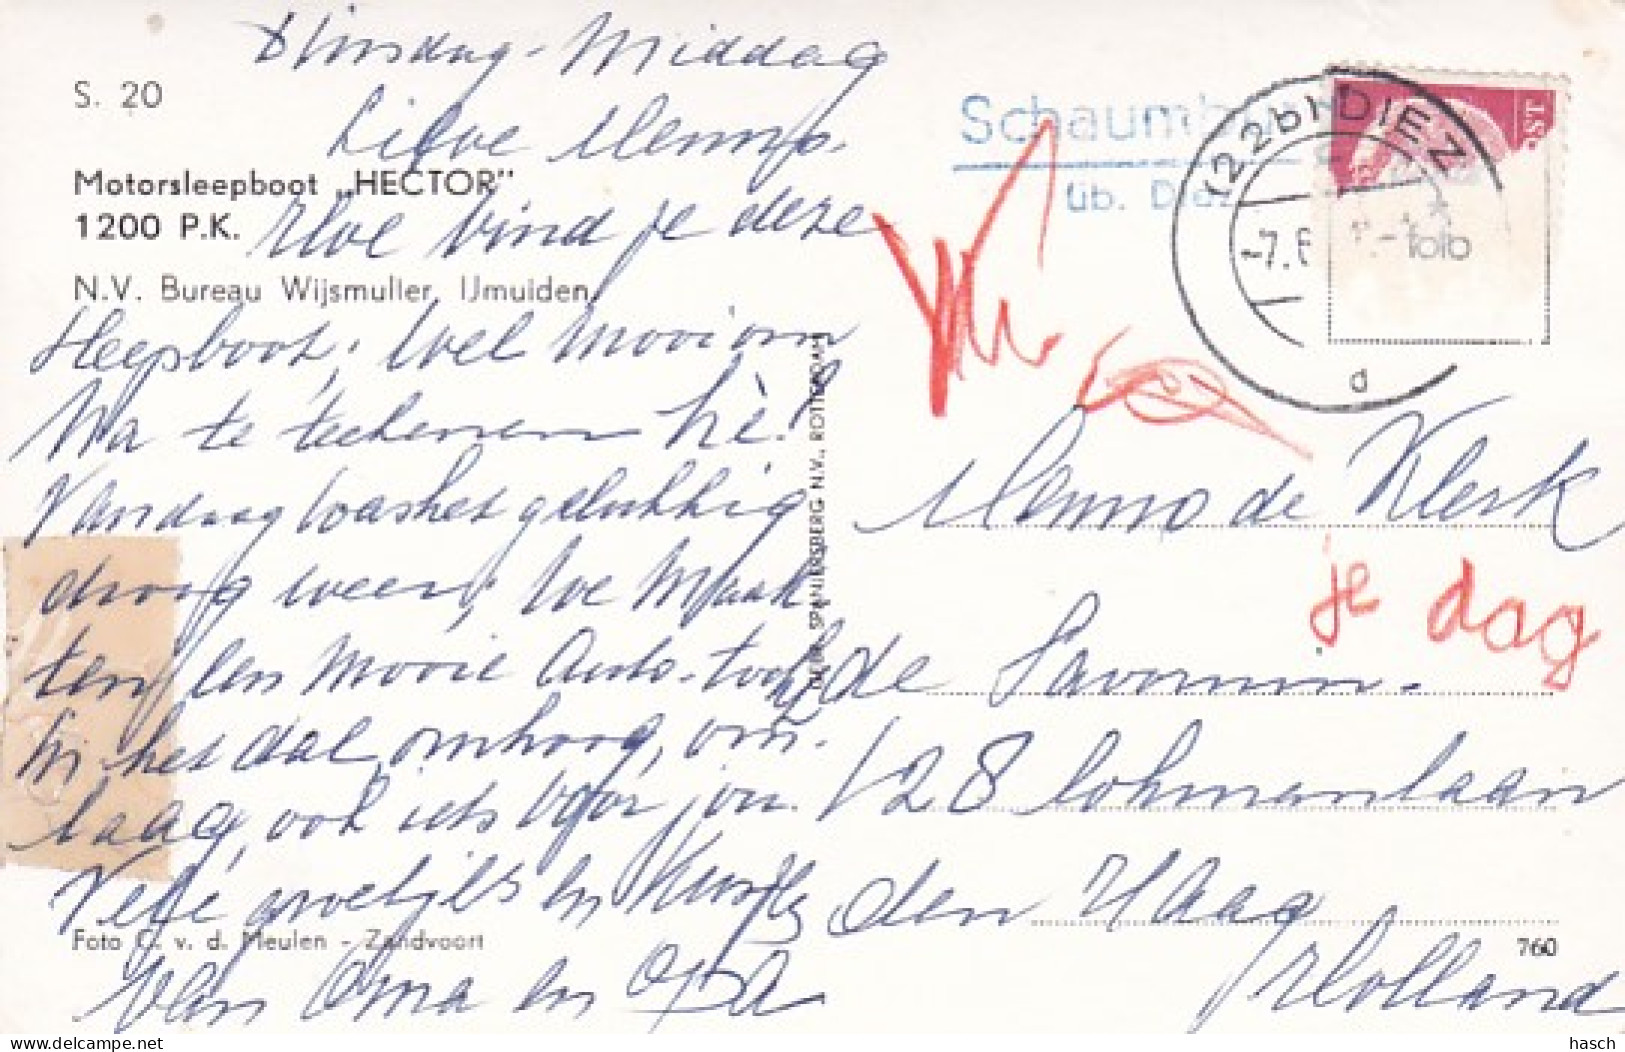 Dinsdag-Middag
S. 20
Lieve Menno.
Motorsleepboot „HECTOR"
1200 P.K.
Hoe vind je deze
N.V. Bureau Wijsmuller, IJmuiden
sleepboot, wel mooi om
Na te tekenen hè!
Vandaag was het gelukkig
droog weer, we maak
ten een mooie Auto-tocht
in het dal omhoog, om-
laag, ook iets voor jou.
Vele groetjes en kusjes
Foto C. v. d. Meulen - Zandvoort
van Oma en Opa
SPANJERSBERG N.V., ROTTERDAM
Schaumburg
üb. Diez
(22b) DIEZ
-7.6
d
foto
Menno de Klerk
je dag
de Savornin-
128 Lohmanlaan
den Haag
760
Holland
delcampe.net
hasch